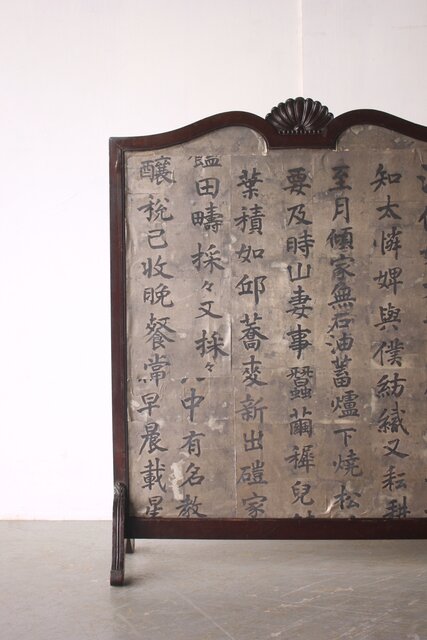 知太憐婢與僕紡織又耘耕
至月傾家無石油蓄爐下燒松
要及時山妻事蠶繭穉兒
葉積如邱蕎麥新出磑家
田疇採々又採々中有名教
釀税已收晚餐常早晨載星